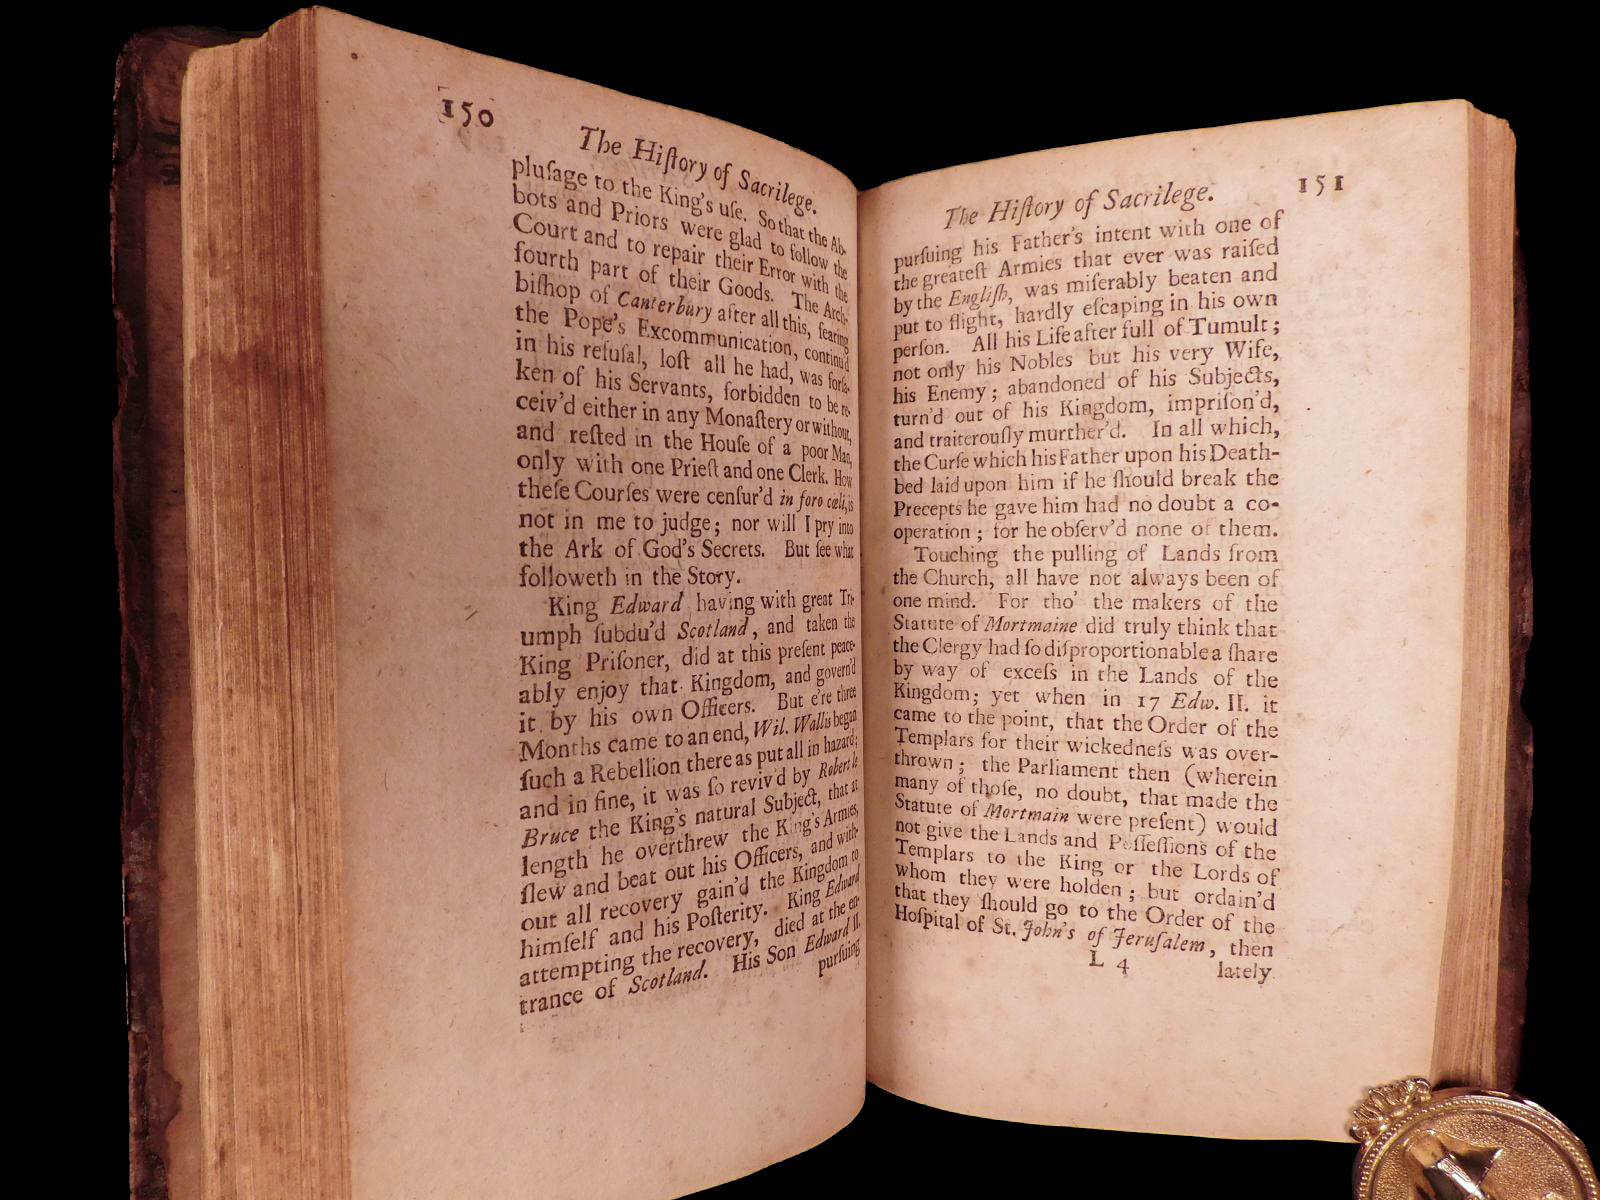 150
The Hiſtory of Sacrilege.
pluſage to the King's uſe. So that the Ab-
bots and Priors were glad to follow the
Court and to repair their Error with the
fourth part of their Goods. The Arch-
biſhop of Canterbury after all this, fearing
the Pope's Excommunication, continu'd
in his refuſal, loſt all he had, was forſa-
ken of his Servants, forbidden to be re-
ceiv'd either in any Monaſtery or without,
and reſted in the Houſe of a poor Man,
only with one Prieſt and one Clerk. How
theſe Courſes were cenſur'd in foro cœli, is
not in me to judge; nor will I pry into
the Ark of God's Secrets. But ſee what
followeth in the Story.
King Edward having with great Tri-
umph ſubdu'd Scotland, and taken the
King Priſoner, did at this preſent peace-
ably enjoy that Kingdom, and govern'd
it by his own Officers. But e're three
Months came to an end, Wil. Wallis began
ſuch a Rebellion there as put all in hazard;
and in fine, it was ſo reviv'd by Robert le
Bruce the King's natural Subject, that at
length he overthrew the King's Armies,
ſlew and beat out his Officers, and with-
out all recovery gain'd the Kingdom to
himſelf and his Poſterity. King Edward
attempting the recovery, died at the en-
trance of Scotland. His Son Edward II.
purſuing
151
The Hiſtory of Sacrilege.
purſuing his Father's intent with one of
the greateſt Armies that ever was raiſed
by the Engliſh, was miſerably beaten and
put to flight, hardly eſcaping in his own
perſon. All his Life after full of Tumult;
not only his Nobles but his very Wife,
his Enemy; abandoned of his Subjects,
turn'd out of his Kingdom, impriſon'd,
and traiterouſly murther'd. In all which,
the Curſe which his Father upon his Death-
bed laid upon him if he ſhould break the
Precepts he gave him had no doubt a co-
operation; for he obſerv'd none of them.
Touching the pulling of Lands from
the Church, all have not always been of
one mind. For tho' the makers of the
Statute of Mortmaine did truly think that
the Clergy had ſo diſproportionable a ſhare
by way of exceſs in the Lands of the
Kingdom; yet when in 17 Edw. II. it
came to the point, that the Order of the
Templars for their wickedneſs was over-
thrown; the Parliament then (wherein
many of thoſe, no doubt, that made the
Statute of Mortmain were preſent) would
not give the Lands and Poſſeſſions of the
Templars to the King or the Lords of
whom they were holden; but ordain'd
that they ſhould go to the Order of the
Hoſpital of St. John's of Jeruſalem, then
L 4 lately